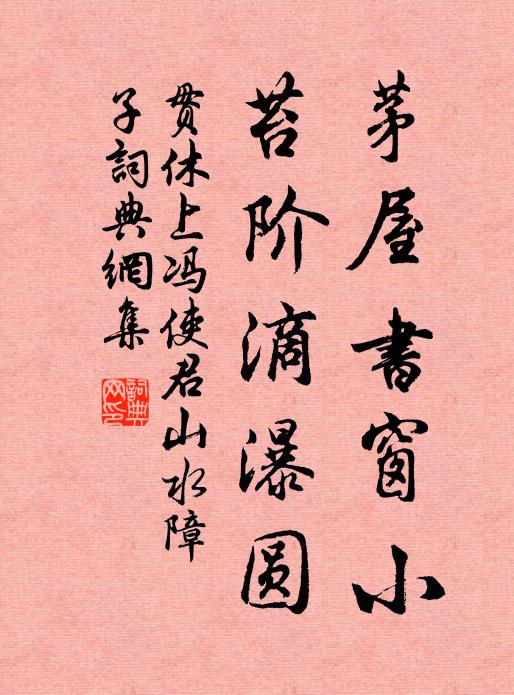 茅屋書窗小
苔阶滴瀑圆
贯休上冯使君山水障
子詞典網集
詞典
网印